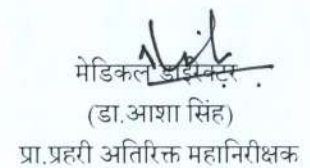 मेडिकल डाइरेक्टर
(डा.आशा सिंह)
प्रा.प्रहरी अतिरिक्त महानिरीक्षक